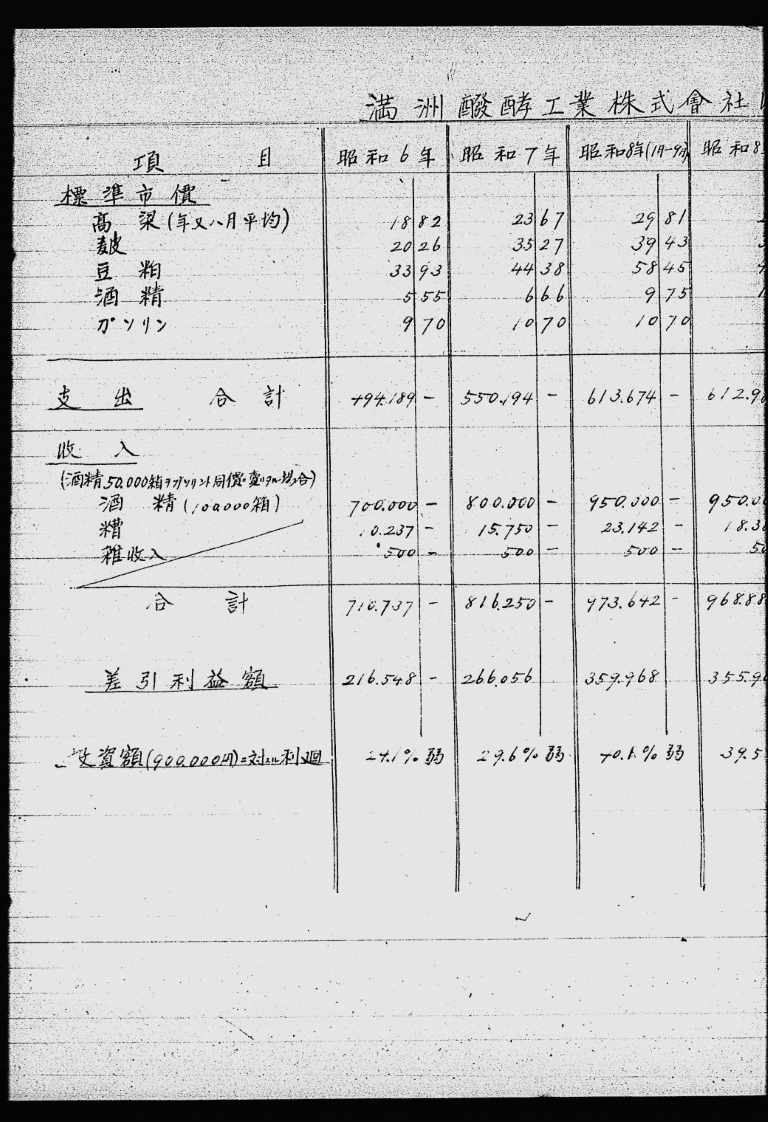 満洲醱酵工業株式會社
項 目 昭和6年 昭和7年 昭和8年(1月-9月) 昭和8
標準市價
高 梁(年又ハ月平均) 18 82 23 67 29 81
麩 20 26 35 27 39 43
豆 粕 33 93 44 38 58 45
酒 精 5 55 6 66 9 75
ガソリン 9 70 10 70 10 70
支 出 合 計 494.189 - 550.194 - 613.674 - 612.9
收 入
(酒精50,000箱ヲガソリント同價ニ賣リタル場合)
酒 精(100,000箱) 700.000 - 800.000 - 950.000 - 950.0
糟 10.237 - 15.750 - 23.142 - 18.3
雜收入 500 - 500 - 500 - 50
合 計 710.737 - 816.250 - 973.642 - 968.88
差引利益額 216.548 - 266.056 359.968 355.9
投資額(900.000円)ニ対スル利廻 24.1%弱 29.6%弱 40.1%弱 39.5